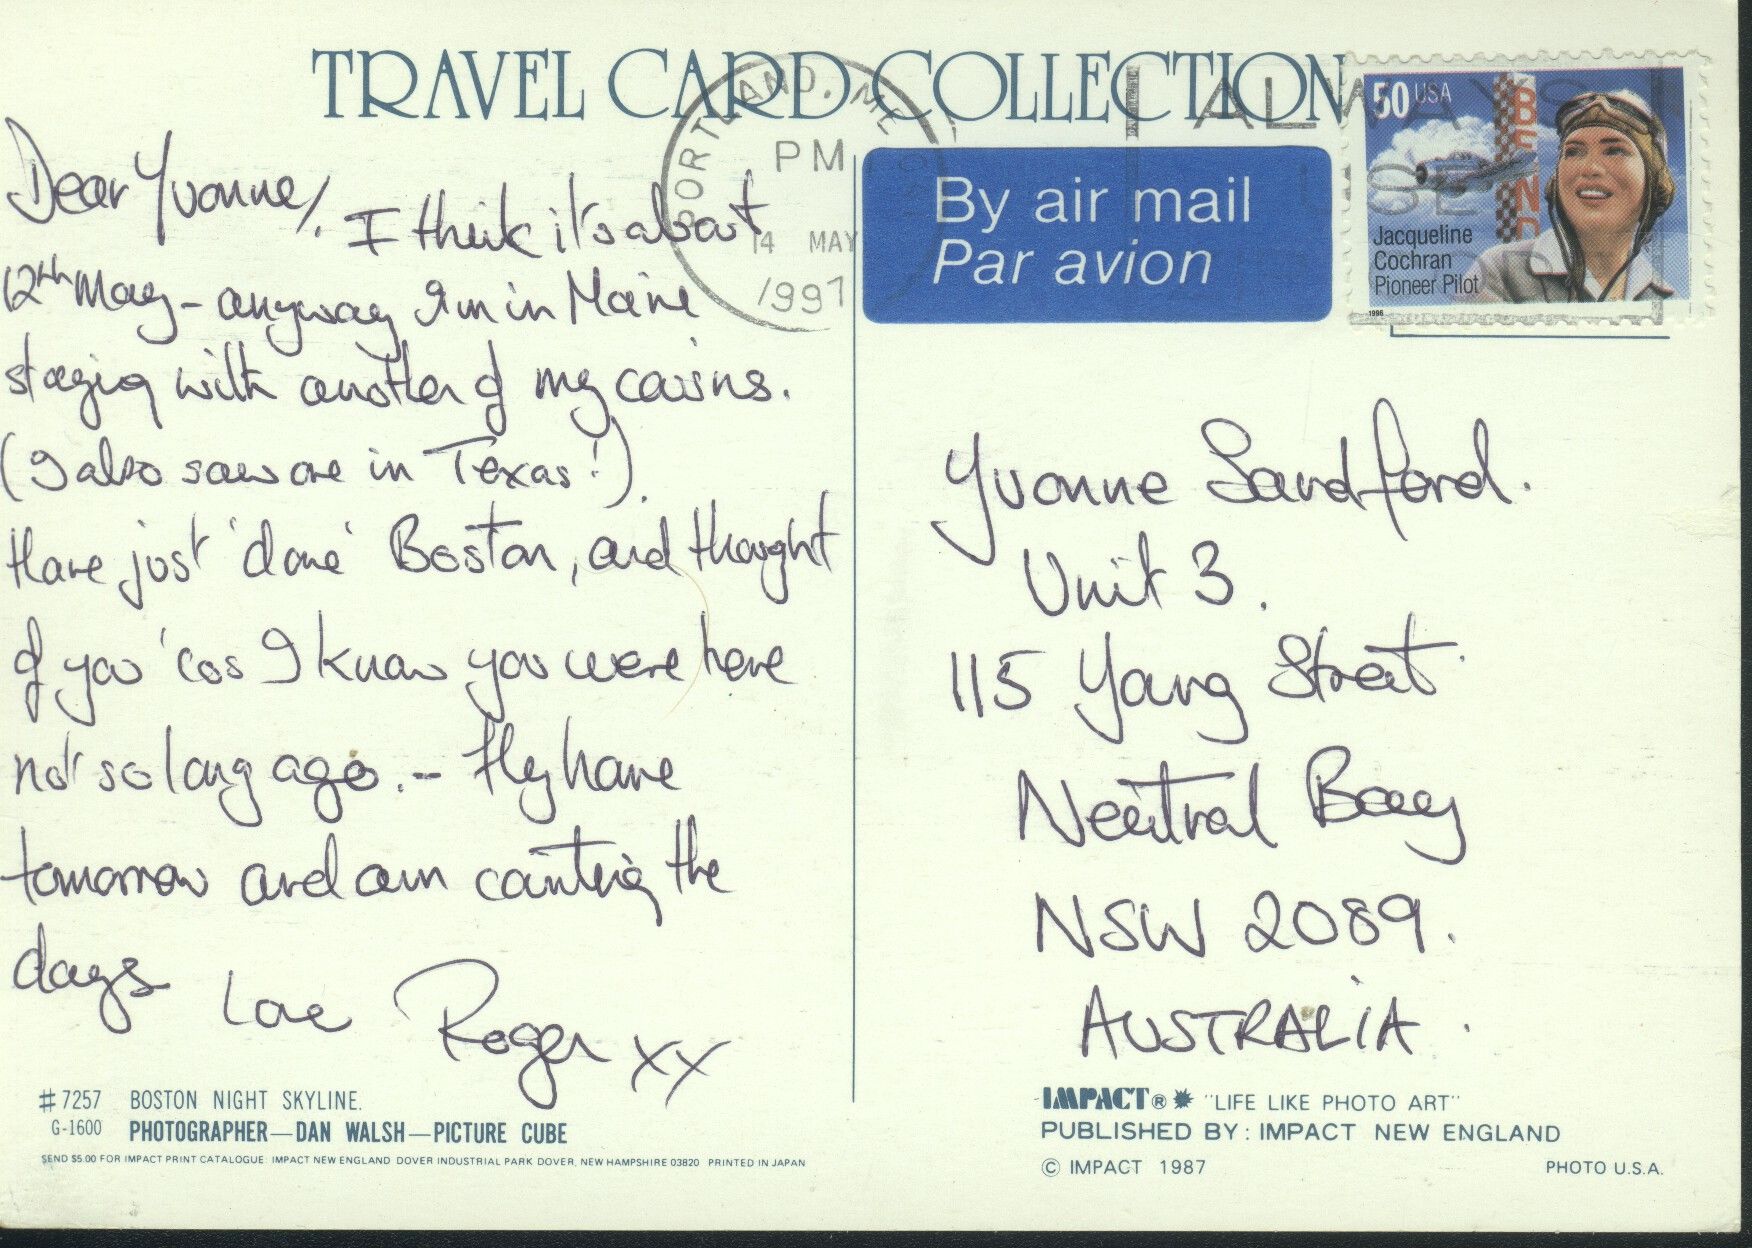 TRAVEL CARD COLLECTION
Dear Yvonne,
I think it's about
12th May - anyway I'm in Maine
staying with another of my cousins.
(I also saw one in Texas!).
Have just 'done' Boston, and thought
of you 'cos I know you were here
not so long ago. - fly home
tomorrow and am counting the
days
Love Roger xx
# 7257 BOSTON NIGHT SKYLINE.
G-1600 PHOTOGRAPHER—DAN WALSH—PICTURE CUBE
SEND $5.00 FOR IMPACT PRINT CATALOGUE: IMPACT NEW ENGLAND DOVER INDUSTRIAL PARK DOVER, NEW HAMPSHIRE 03820 PRINTED IN JAPAN
PORTLAND, ME
PM
14 MAY
1997
By air mail
Par avion
ALWAYS
USE
50 USA
BEND
Jacqueline
Cochran
Pioneer Pilot
1996
Yvonne Sandford.
Unit 3.
115 Young Street
Neutral Bay
NSW 2089.
AUSTRALIA.
IMPACT® "LIFE LIKE PHOTO ART"
PUBLISHED BY: IMPACT NEW ENGLAND
© IMPACT 1987
PHOTO U.S.A.